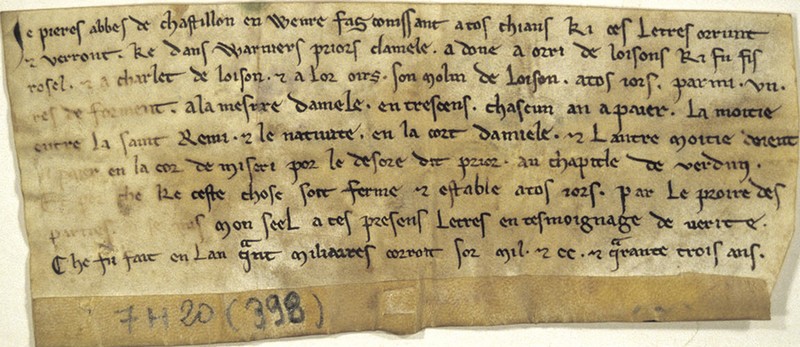 Je pieres abbes de chastillon en Wevre fas conissant a tos chiaus Ki ces Letres orrunt
⁊ verront. Ke dans Warniers priors damele. a doné a orri de loisons Ki fu fis
rosel. ⁊ a charlet de loison. ⁊ a lor oirs. son molin de Loison. a tos iors. parmi. vn.
res de forment. a la mesure damele. en trescens. chascun an a paier. La moitie
entre La saint Remi. ⁊ le nativite. en la cort damele. ⁊ Lautre moitie doient
paier en la cor de miseri por le desore dit prior. au chapitle de verdun.
che Ke ceste chose soit ferme ⁊ estable a tos iors. par Le proire des
parties mon seel a ces presens Letres en tesmoignage de verite.
Che fu fait en Lan qant miliaires corroit sor mil. ⁊ cc. ⁊ qrante trois ans.
7 H 20 (398)